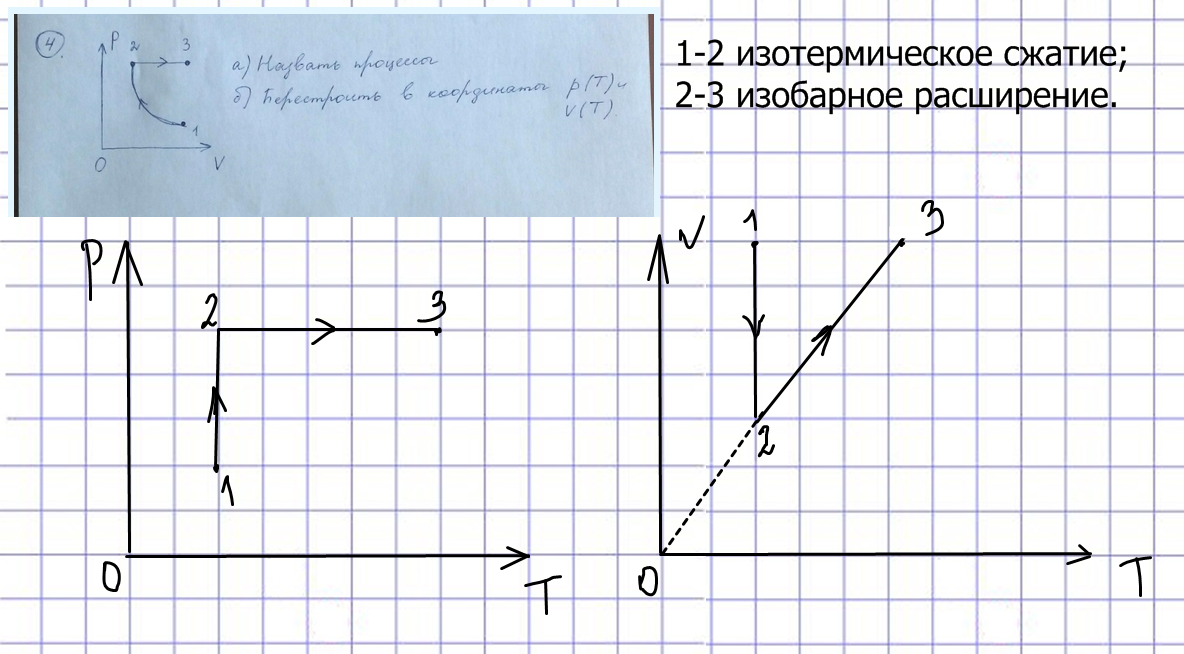 4.
P
2 3
1
0 V
а) Назвать процессы
б) Перестроить в координатах p(T) и
V(T).
1-2 изотермическое сжатие;
2-3 изобарное расширение.
P
2 3
1
0 T
V
1 3
2
0 T